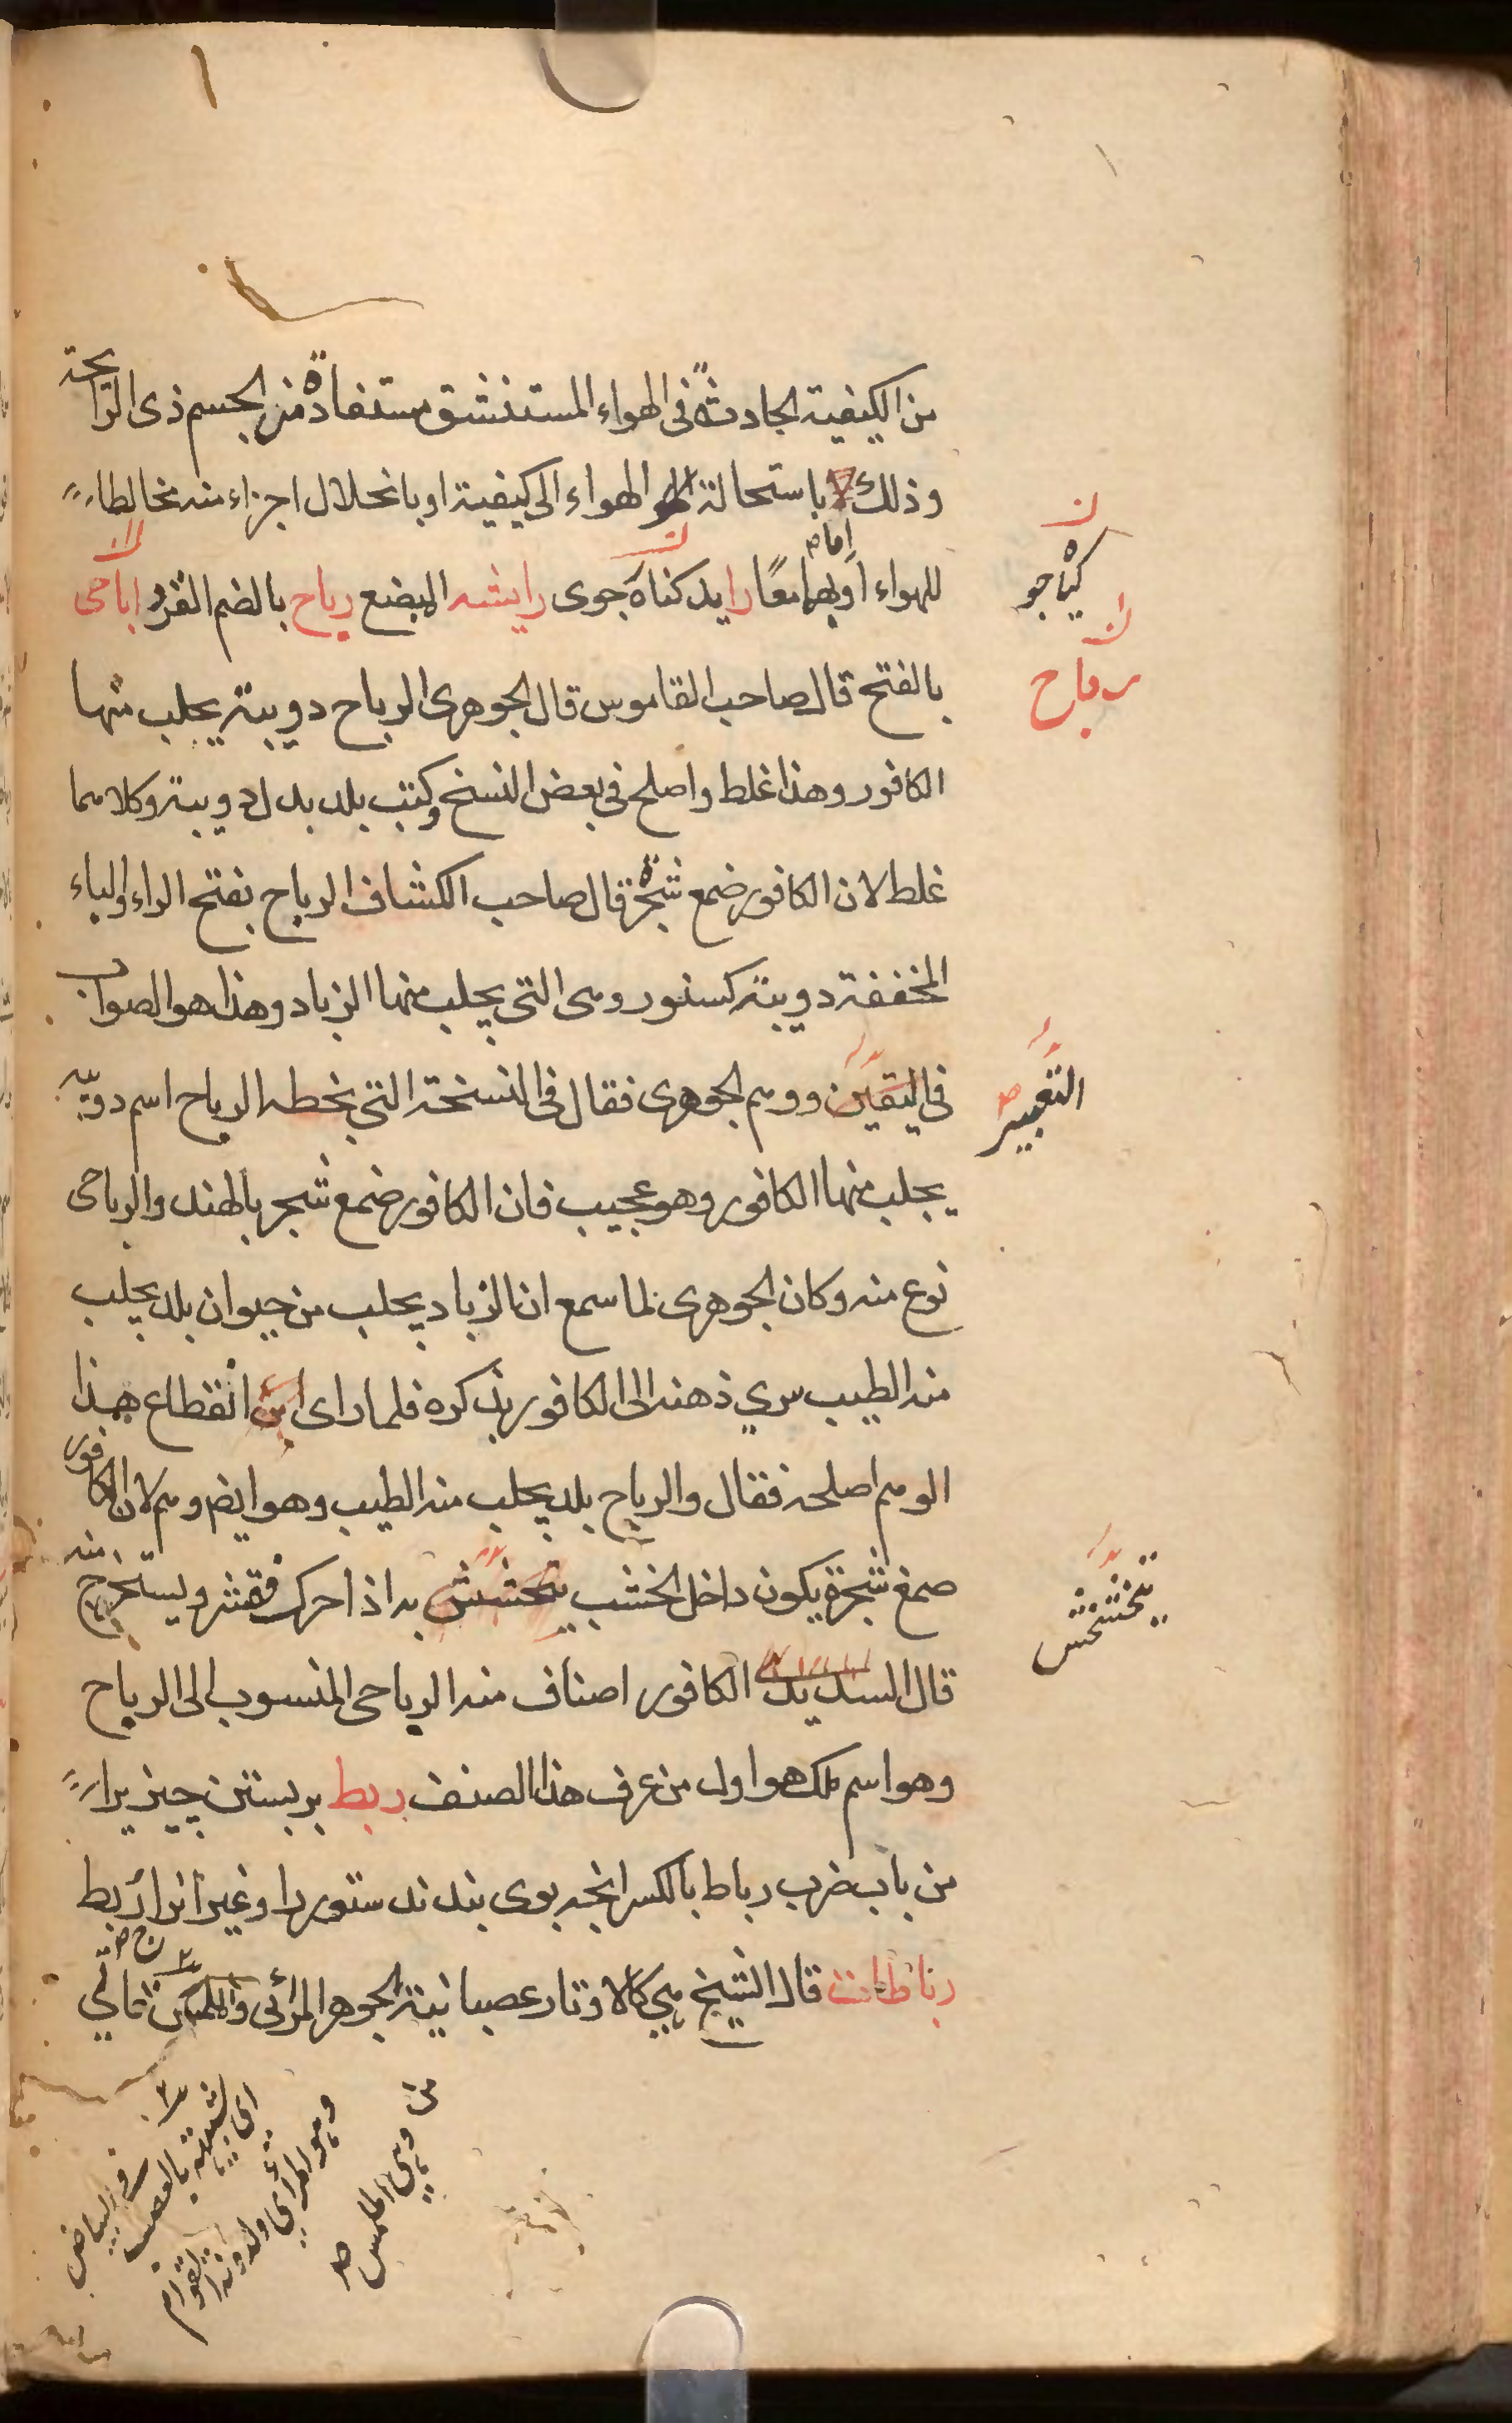 من الكيفية الحادثة فى الهواء المستنشق مستفادة من الجسم ذى الرائحة
وذلك باستحالة الهواء الى كيفية او بانحلال اجزاء منه مخالطا
للهواء او بهما معًا رايد كناه جوى رايشه المبضع رباح بالضم القرد اباحى
امام
كياه جو
رباح
بالفتح قال صاحب القاموس قال الجوهرى الرباح دويبة يجلب منها
الكافور وهذا غلط واصلح فى بعض النسخ وكتب بلد بدل دويبة وكلاهما
غلط لان الكافور ضمع شجرة قال صاحب الكشاف الرباح بفتح الراء والباء
المخففة دويبة كسنور وهى التى يجلب منها الزباد وهذا هو الصواب
فى اليقين ووهم الجوهرى فقال فى النسخة التى بخطه الرباح اسم دويبة
التعبير
يجلب منها الكافور وهو عجيب فان الكافور ضمع شجر بالهند والرباحى
نوع منه وكان الجوهرى لما سمع ان الزباد يحلب من حيوان بلد يجلب
منه الطيب سرى ذهنه الى الكافور بذكره فلما راى ابن انقطاع هذا
الوهم اصلحه فقال والرباح بلد يجلب منه الطيب وهو ايضا وهم لان الكافور
صمغ شجرة يكون داخل الخشب يتخشش به اذا حرك فقشر ويستخرج منه
يتخشخش
قال السديدى الكافور اصناف منه الرباحى المنسوب الى الرباح
وهو اسم ملك هو اول من عرف هذا الصنف ربط بر بستن چيز يرا
من باب ضرب رباط بالكسر انچه بوى بندند ستور را وغير انرا اربط
رباطات قال الشيخ هى كالاوتار عصبانية الجوهر المرائى والملمس تاتى
اى شبيهة بالعصب فى البياض
وهو المرائى ولدونة القوام
من وهى الملمس